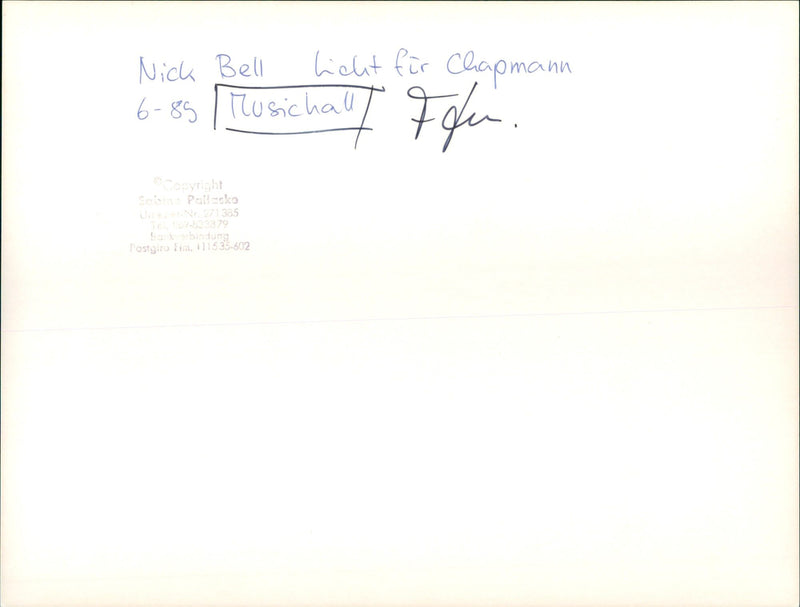 Nick Bell Licht für Chapmann
6-89 Musichall
©Copyright
Sabine Pallaske
271385
Tel.
Bankverbindung
Postgiro Ffm.